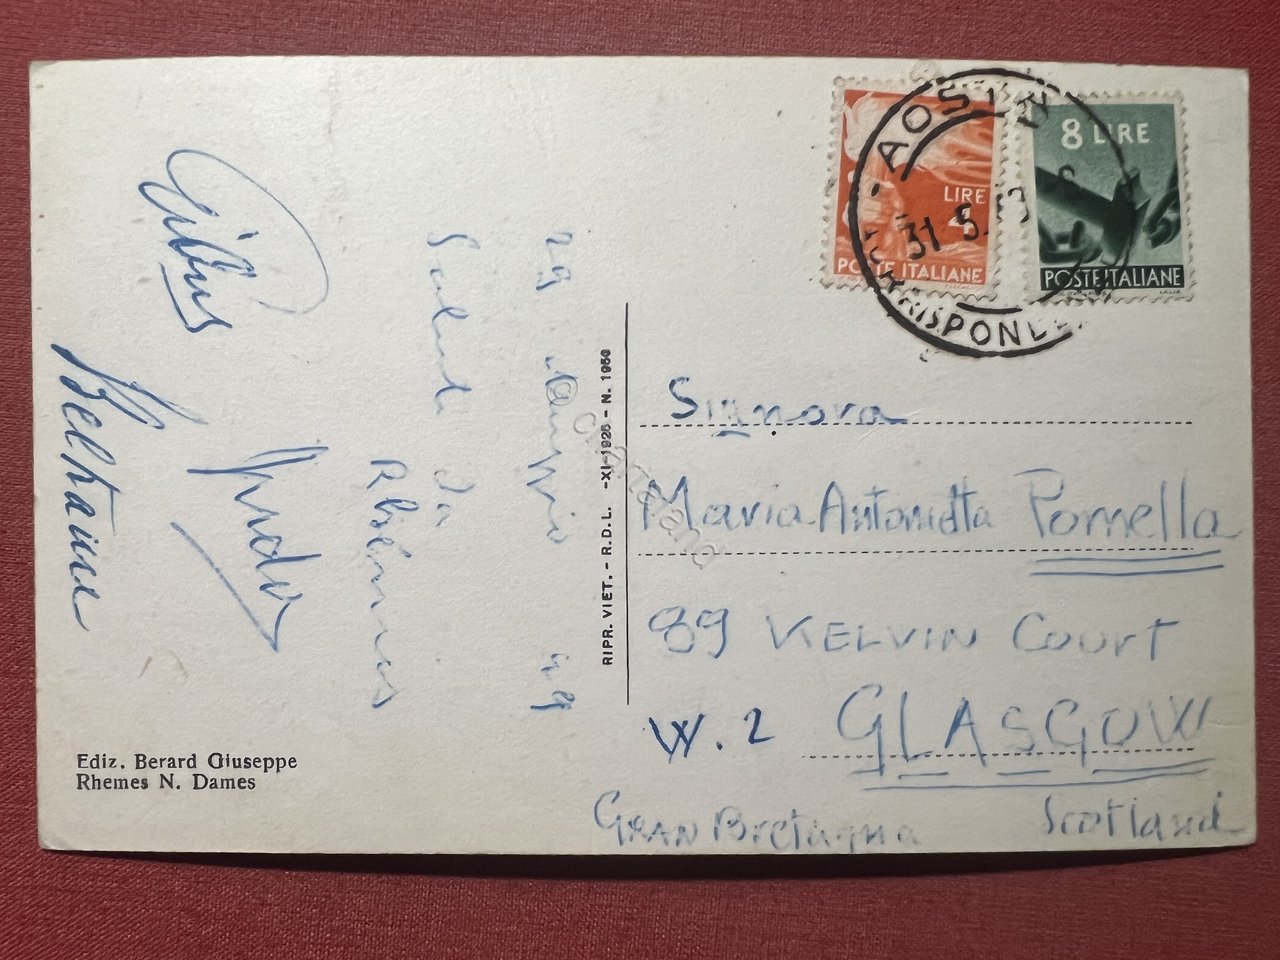 29 maggio 49
Saluti da
Rhêmes
Gibus
Guido
Beltaine
Ediz. Berard Giuseppe
Rhemes N. Dames
RIPR. VIET. - R.D.L. -XI-1925 - N. 1956
© Cartoland
LIRE
4
POSTE ITALIANE
8 LIRE
POSTE ITALIANE
AOSTA
31.5.
Signora
Maria Antonietta Pomella
89 KELVIN COURT
W. 2 GLASGOW
GRAN Bretagna Scotland